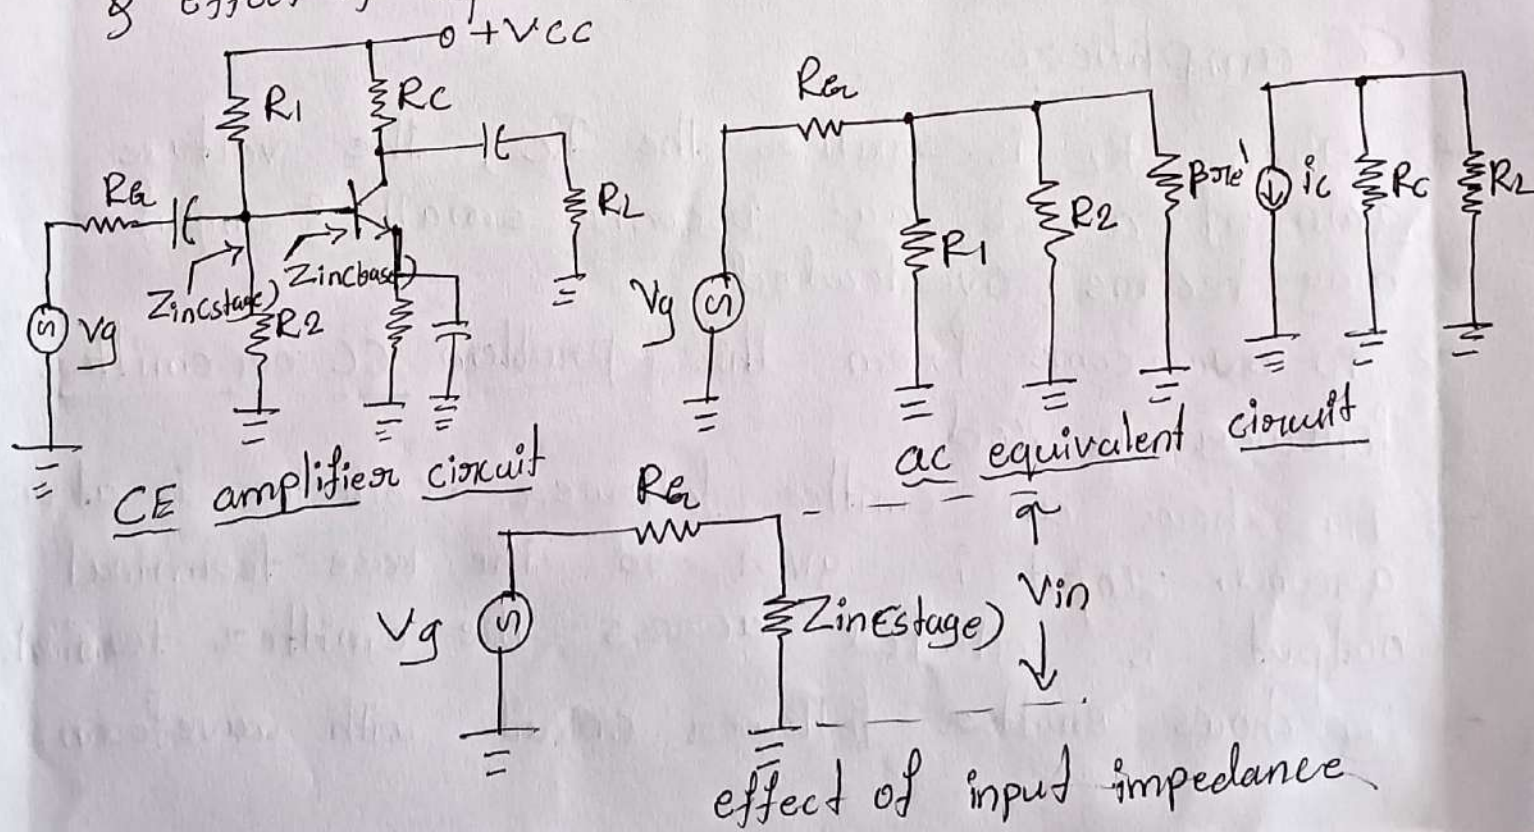 +VCC
R1
RC
RG
RL
Zin(stage)
Zin(base)
R2
Vg
CE amplifier circuit
RG
R1
R2
βre'
ic
RC
RL
Vg
ac equivalent circuit
RG
Vg
Zin(stage)
Vin
effect of input impedance